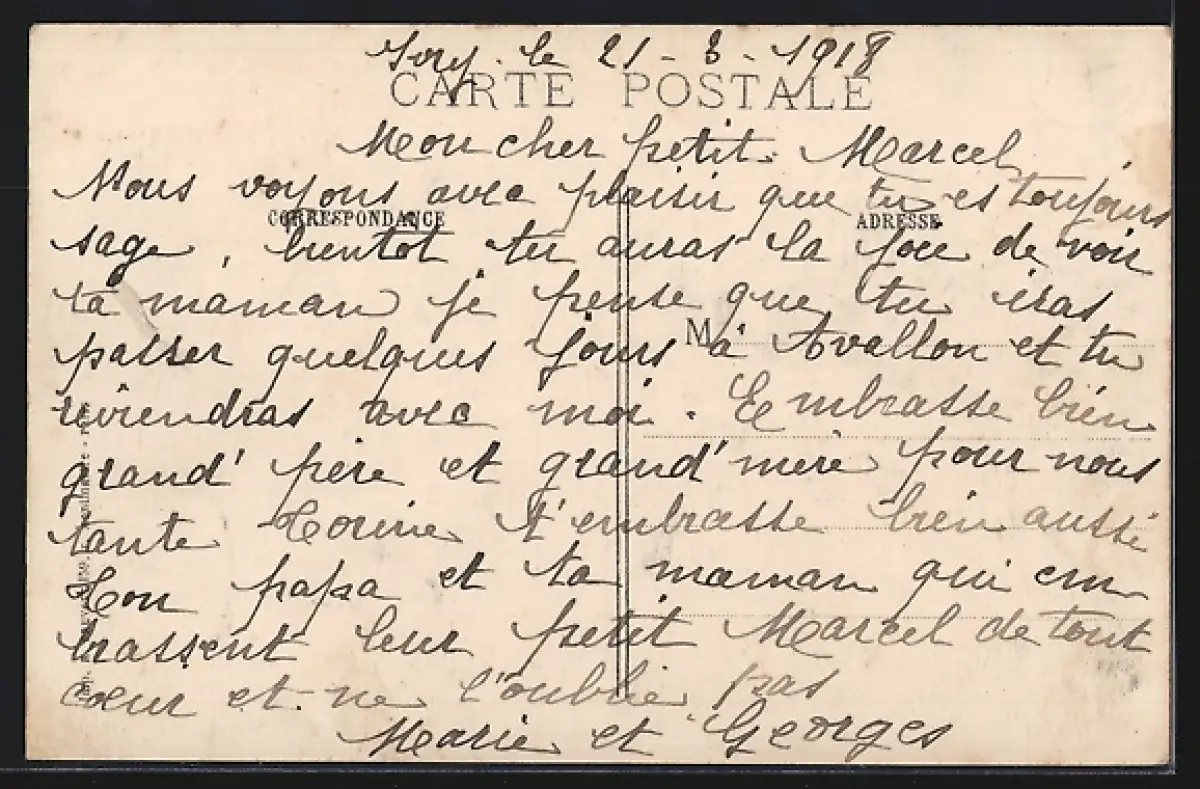 le 21 - 3 - 1918
CARTE POSTALE
Mon cher petit Marcel
Nous voyons avec plaisir que tu es toujours
CORRESPONDANCE
ADRESSE
sage, bientot tu auras la joie de voir
ta maman je pense que tu iras
passer quelques jours à Avallon et tu
M
reviendras avec moi. Embrasse bien
grand' père et grand' mère pour nous
tante t'embrasse bien aussi
Ton papa et ta maman qui em
brassent leur petit Marcel de tout
cœur et ne l'oublie pas
Marie et Georges